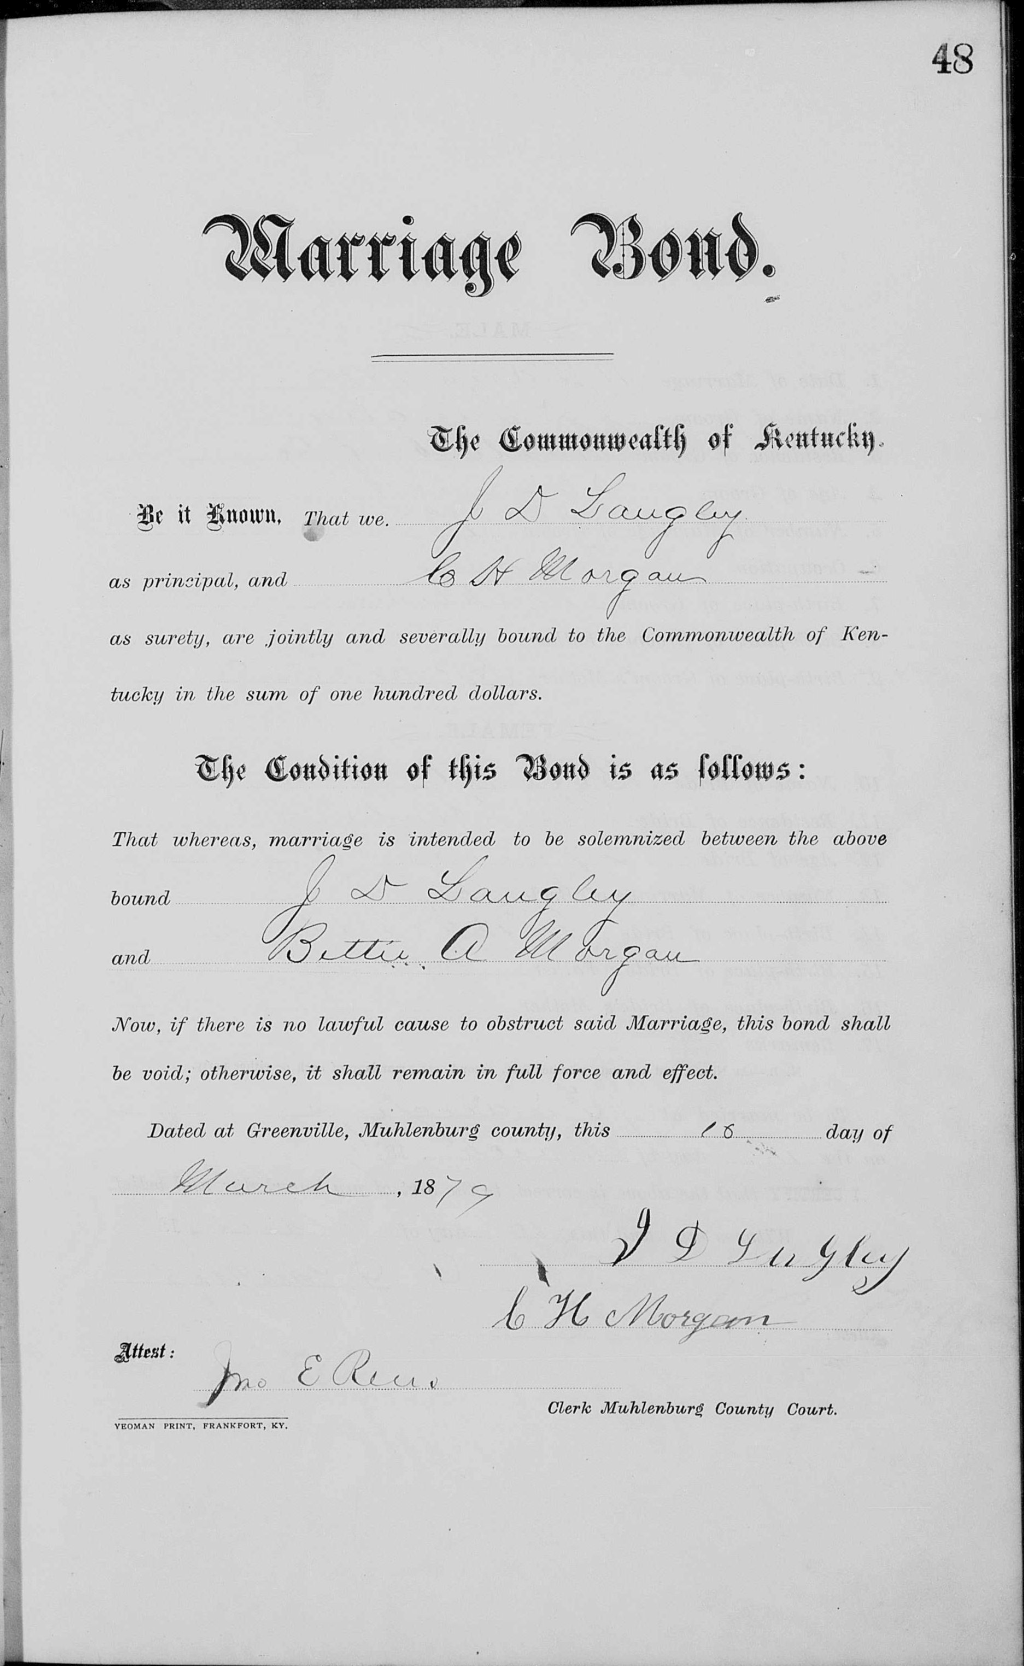 48
Marriage Bond.
The Commonwealth of Kentucky.
Be it Known, That we, J D Langley
as principal, and C H Morgan
as surety, are jointly and severally bound to the Commonwealth of Ken-
tucky in the sum of one hundred dollars.
The Condition of this Bond is as follows:
That whereas, marriage is intended to be solemnized between the above
bound J D Langley
and Bettie A Morgan
Now, if there is no lawful cause to obstruct said Marriage, this bond shall
be void; otherwise, it shall remain in full force and effect.
Dated at Greenville, Muhlenburg county, this day of
March, 1879
J D Lngley
C H Morgan
Attest:
Jno E Reno
Clerk Muhlenburg County Court.
YEOMAN PRINT, FRANKFORT, KY.